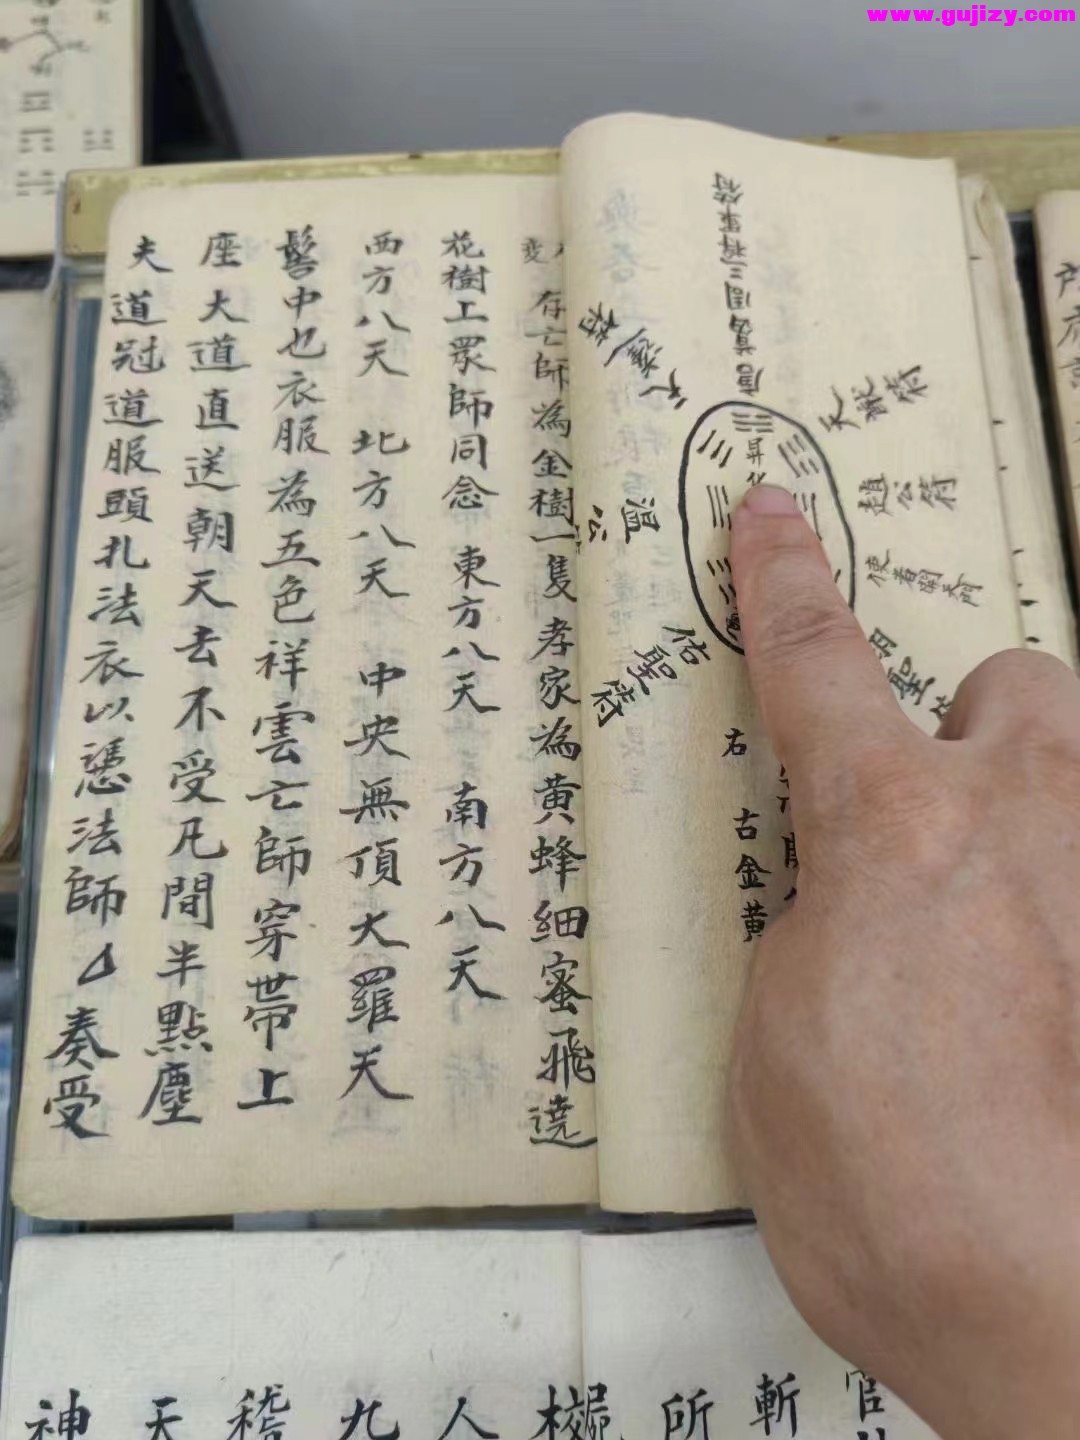 www.gujizy.com
唐葛周三将軍符
天蓬符
天猷符
趙公符
使者開天門
溫公
佑聖符
聖
昇
右
古金黃
变
存亡師為金樹一隻孝家為黃蜂細蜜飛遶
花樹上眾師同念 東方八天 南方八天
西方八天 北方八天 中央無頂大羅天
髻中也衣服為五色祥雲亡師穿帶上
座大道直送朝天去不受凡間半點塵
夫道冠道服頭扎法衣以憑法師厶奏受
斬
所
人
九
稽
天
神